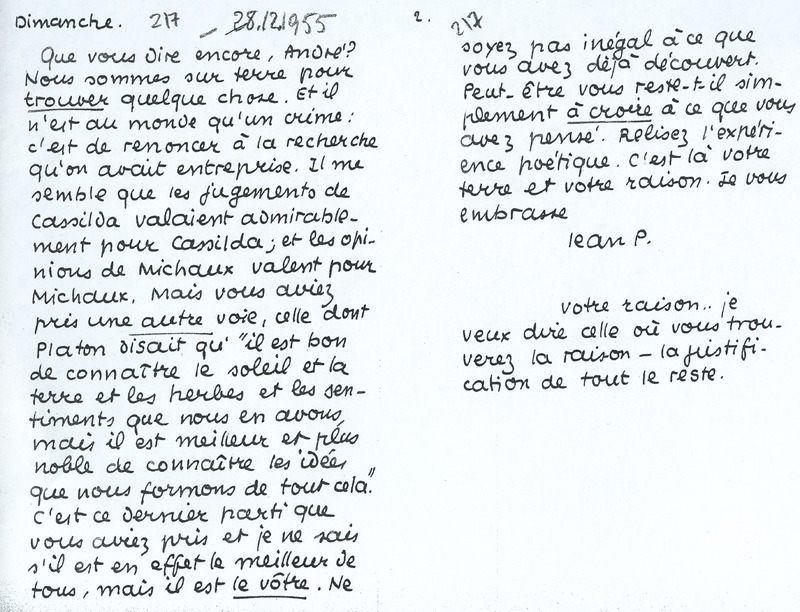 Dimanche. 217 — 28.12.1955
Que vous dire encore, André?
Nous sommes sur terre pour
trouver quelque chose. Et il
n'est au monde qu'un crime:
c'est de renoncer à la recherche
qu'on avait entreprise. Il me
semble que les jugements de
Cassilda valaient admirable-
ment pour Cassilda; et les opi-
nions de Michaux valent pour
Michaux. Mais vous aviez
pris une autre voie, celle dont
Platon disait qu' "il est bon
de connaître le soleil et la
terre et les herbes et les sen-
timents que nous en avons,
mais il est meilleur et plus
noble de connaître les idées
que nous formons de tout cela."
C'est ce dernier parti que
vous aviez pris et je ne sais
s'il est en effet le meilleur de
tous, mais il est le vôtre. Ne
2. 217
soyez pas inégal à ce que
vous avez déjà découvert.
Peut-être vous reste-t-il sim-
plement à croire à ce que vous
avez pensé. Relisez l'expéri-
ence poétique. C'est là votre
terre et votre raison. Je vous
embrasse
Jean P.
votre raison.. je
veux dire celle où vous trou-
verez la raison – la justifi-
cation de tout le reste.